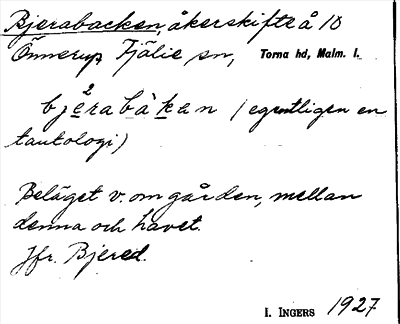 Bjerabacken, åkerskifte å 10
Önnerup Fjälie sn, Torna hd, Malm. l.
bjèrabàkan (egentligen en
tautologi)
Beläget v. om gården, mellan
denna och havet.
Jfr. Bjered.
I. INGERS 1927